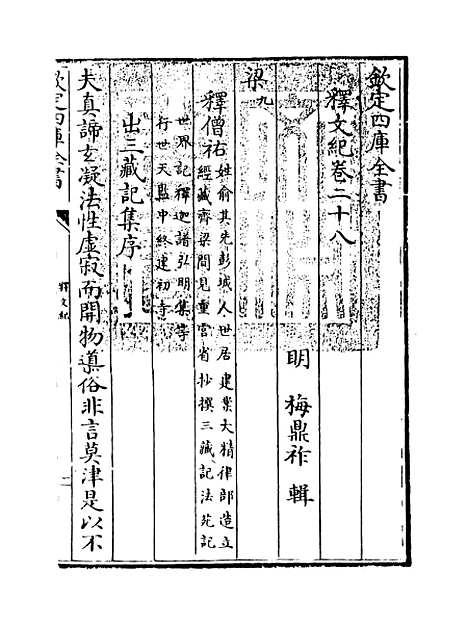 欽定四庫全書
釋文紀卷二十八
明 梅鼎祚 輯
梁九
釋僧祐姓俞其先彭城人世居建業大精律部造立
經藏齊梁間見重當省抄撰三藏記法苑記
世界記釋迦譜弘明集等
行世天監中終建初寺
出三藏記集序
夫真諦玄凝法性虛寂而開物導俗非言莫津是以不
欽定四庫全書
釋文紀